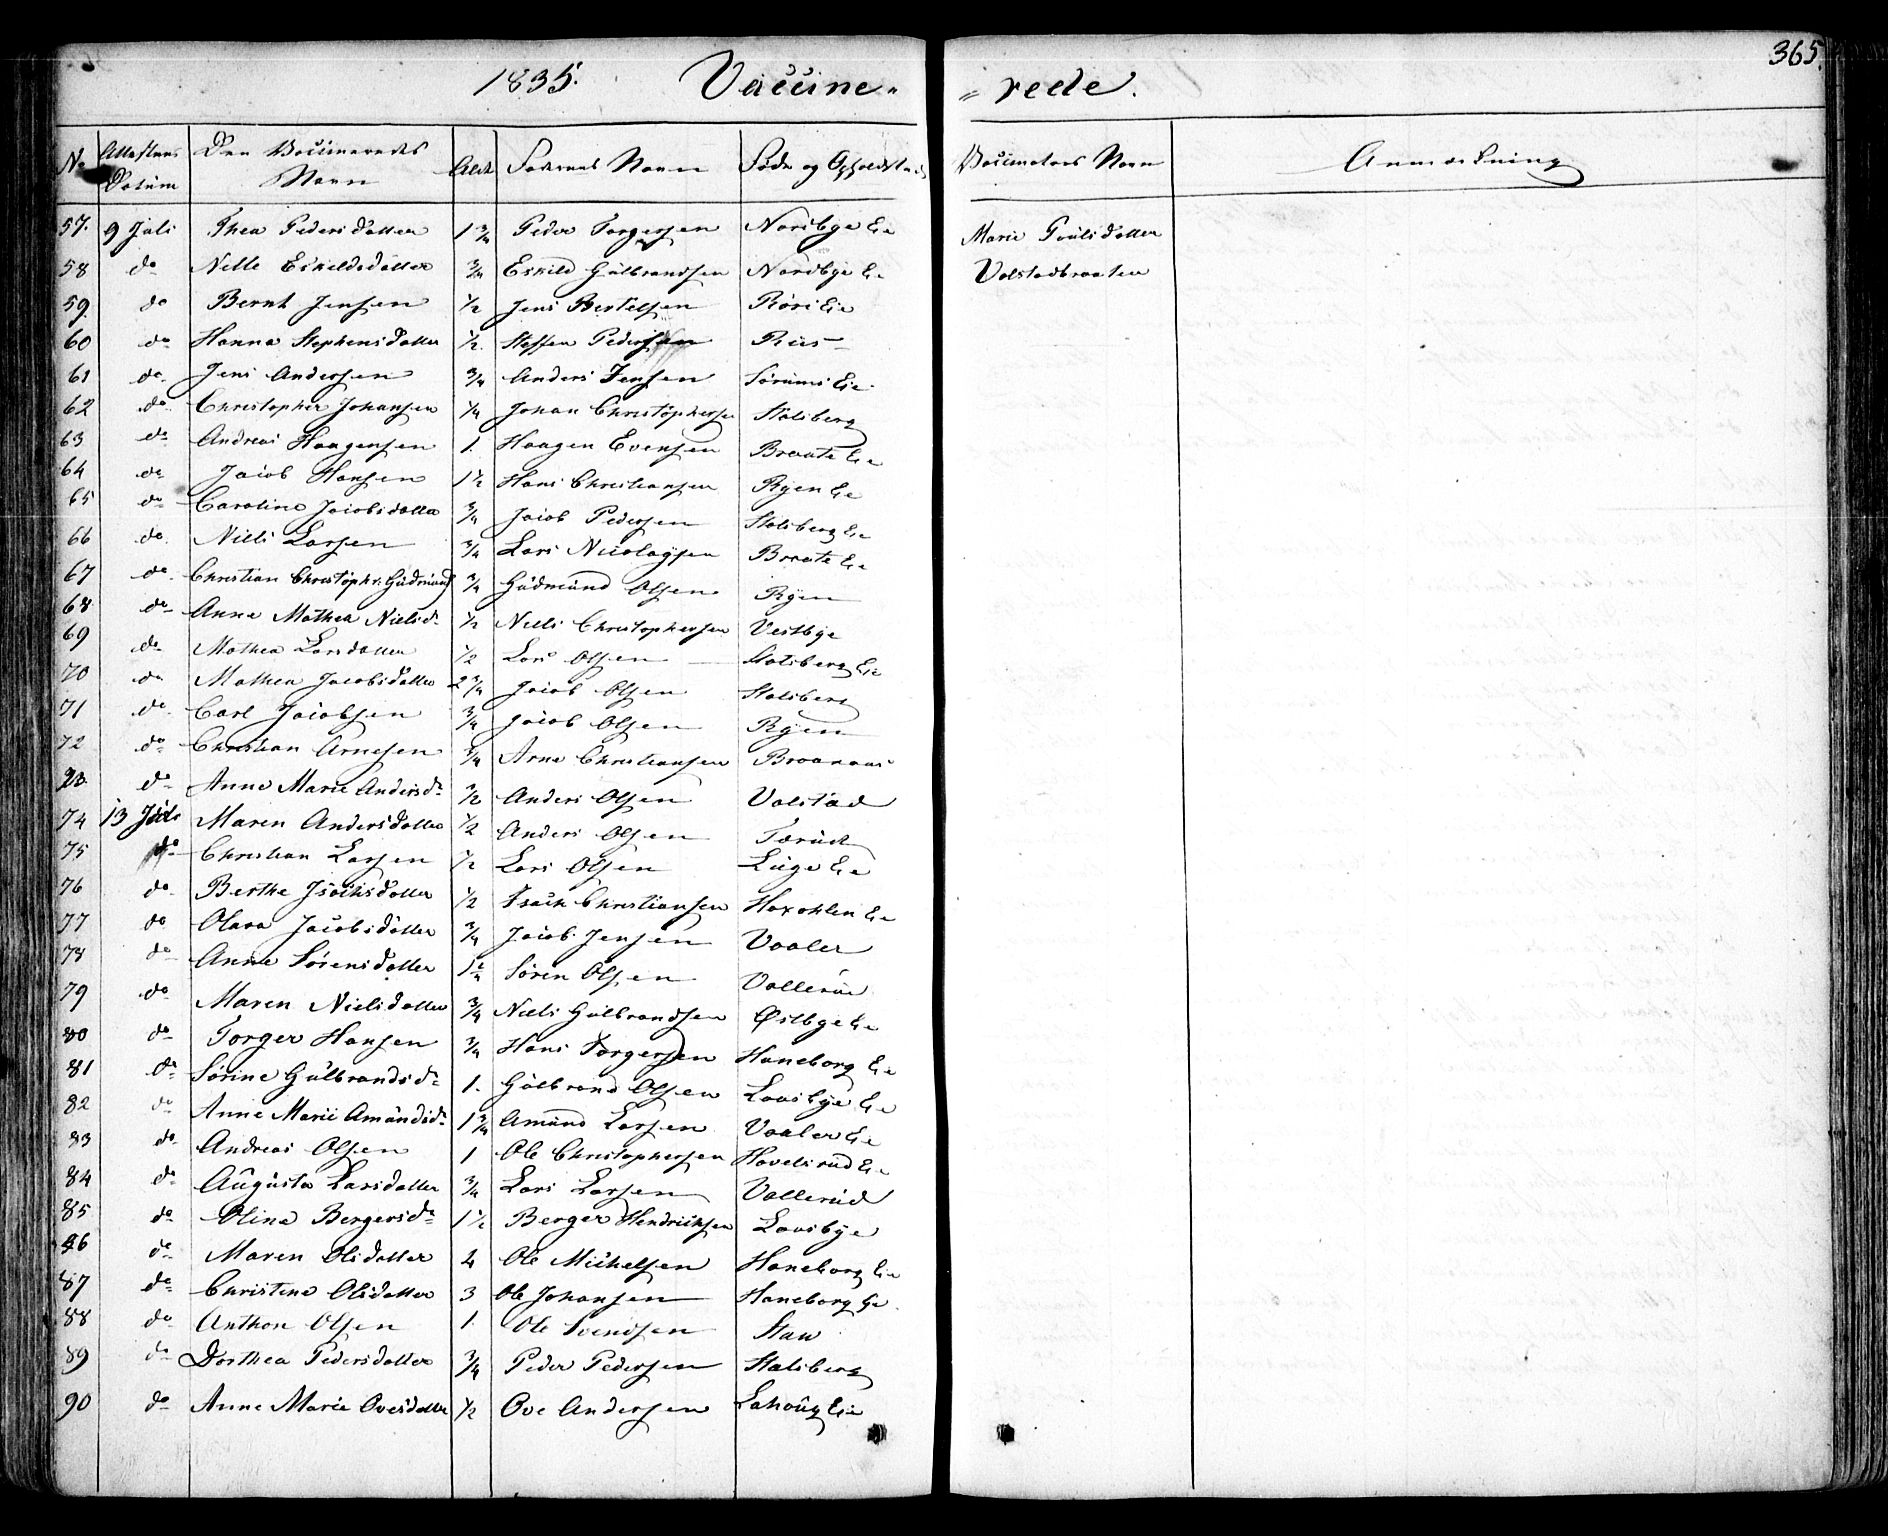 365.
1835. Vaccine- =rede.
No Attestens Datum Den Vaccineredes Navn Ald: Faderens Navn Føde og Opholdsted Vaccinateurs Navn Anmærkning
57. 9 Juli Thea Pedersdatter 1 3/4 Peder Torgersen Nordbye Eie Marie Poulsdatter
58 do Nelle Eskildsdatter 3/4 Eskild Gulbrandsen Nordbye Eie Volstadbraaten
59. do Bernt Jensen 1/2 Jens Bertelsen Røse Eie
60 do Hanna Stephensdatter 1/2 Steffen Pedersen Riis
61 do Jens Andersen 3/4 Anders Jensen Sørums Eie
62 do Christopher Johansen 1/4 Johan Christophersen Stalsberg
63 do Andreas Haagensen 1. Haagen Evensen Braate Eie
64 do Jacob Hansen 1 1/2 Hans Christiansen Ryen Eie
65 do Caroline Jacobsdatter 3/4 Jacob Pedersen Stalsberg Eie
66 do Niels Larsen 3/4 Lars Nicolaysen Braate Eie
67 do Christian Christophr: Gudmund 3/4 Gudmund Olsen Ryen
68 do Anne Mathea Nielsdr 1/2 Niels Christophersen Vestbye
69 do Mathea Larsdatter 1/2 Lars Olsen Stalsberg Eie
70 do Mathea Jacobsdatter 2 3/4 Jacob Olsen Stalsberg
71 do Carl Jacobsen 3/4 Jacob Olsen Ryen
72 do Christian Arnesen 3/4 Arne Christiansen Braanaas
73. do Anne Marie Andersdr 1/2 Anders Olsen Volstad
74 13 Juli Maren Andersdatter 1/2 Anders Olsen Tærud
75 do Christian Larsen 1/2 Lars Olsen Luge Eie
76 do Berthe Isachsdatter 1/2 Isach Christiansen Hexohlen Eie
77 do Olava Jacobsdatter 3/4 Jacob Jensen Vaaler
78 do Anne Sørensdatter 1 1/2 Søren Olsen Vallerud
79 do Maren Nielsdatter 3/4 Niels Gulbrandsen Østbye Eie
80 do Torger Hansen 3/4 Hans Torgersen Haneborg Eie
81 do Sørine Gulbrandsdr 1. Gulbrand Olsen Lausbye Eie
82 do Anne Marie Amundsdr 1 3/4 Amund Larsen Vaaler Eie
83 do Andreas Olsen 1 Ole Christophersen Hovelsrud Eie
84 do Augusta Larsdatter 3/4 Lars Larsen Vallerud
85 do Oline Bergersdr 1 1/2 Berger Hendrichsen Lausbye
86 do Maren Olsdatter 2 Ole Michelsen Haneborg Eie
87 do Christine Olsdatter 3 Ole Johansen Haneborg Eie
88 do Anthon Olsen 1. Ole Svendsen
89 do Dorthea Pedersdatter 3/4 Peder Pedersen Stalsberg
90 do Anne Marie Ovesdatter 1/2 Ove Andersen Lahoug Eie